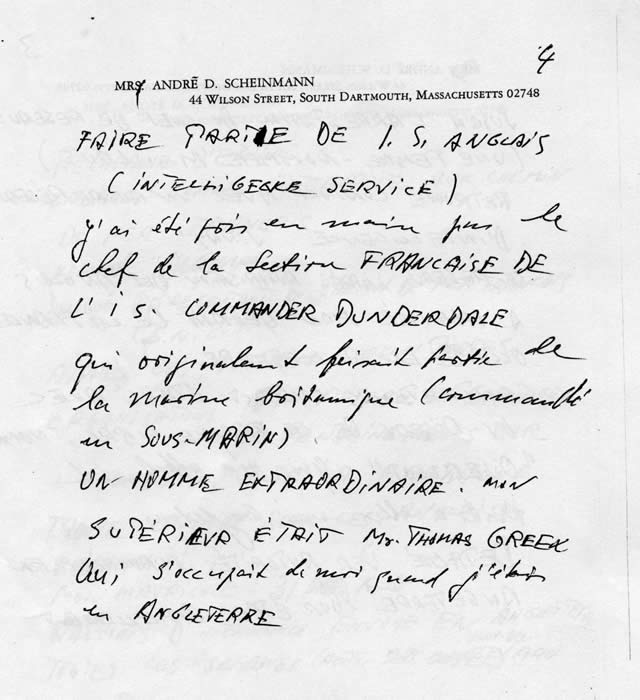 4
MRS ANDRÉ D. SCHEINMANN
44 WILSON STREET, SOUTH DARTMOUTH, MASSACHUSETTS 02748
FAIRE PARTIE DE I. S. ANGLAIS
(INTELLIGEGKE SERVICE)
j'ai été pris en main par le
chef de la section FRANCAISE DE
L' I S. COMMANDER DUNDERDALE
qui originalement faisait partie de
la marine britannique (commandé
un SOUS-MARIN)
UN HOMME EXTRAORDINAIRE. MON
SUPÉRIEUR ÉTAIT Mr. THOMAS GREEN
Qui s'occupait de moi quand j'étais
en ANGLETERRE